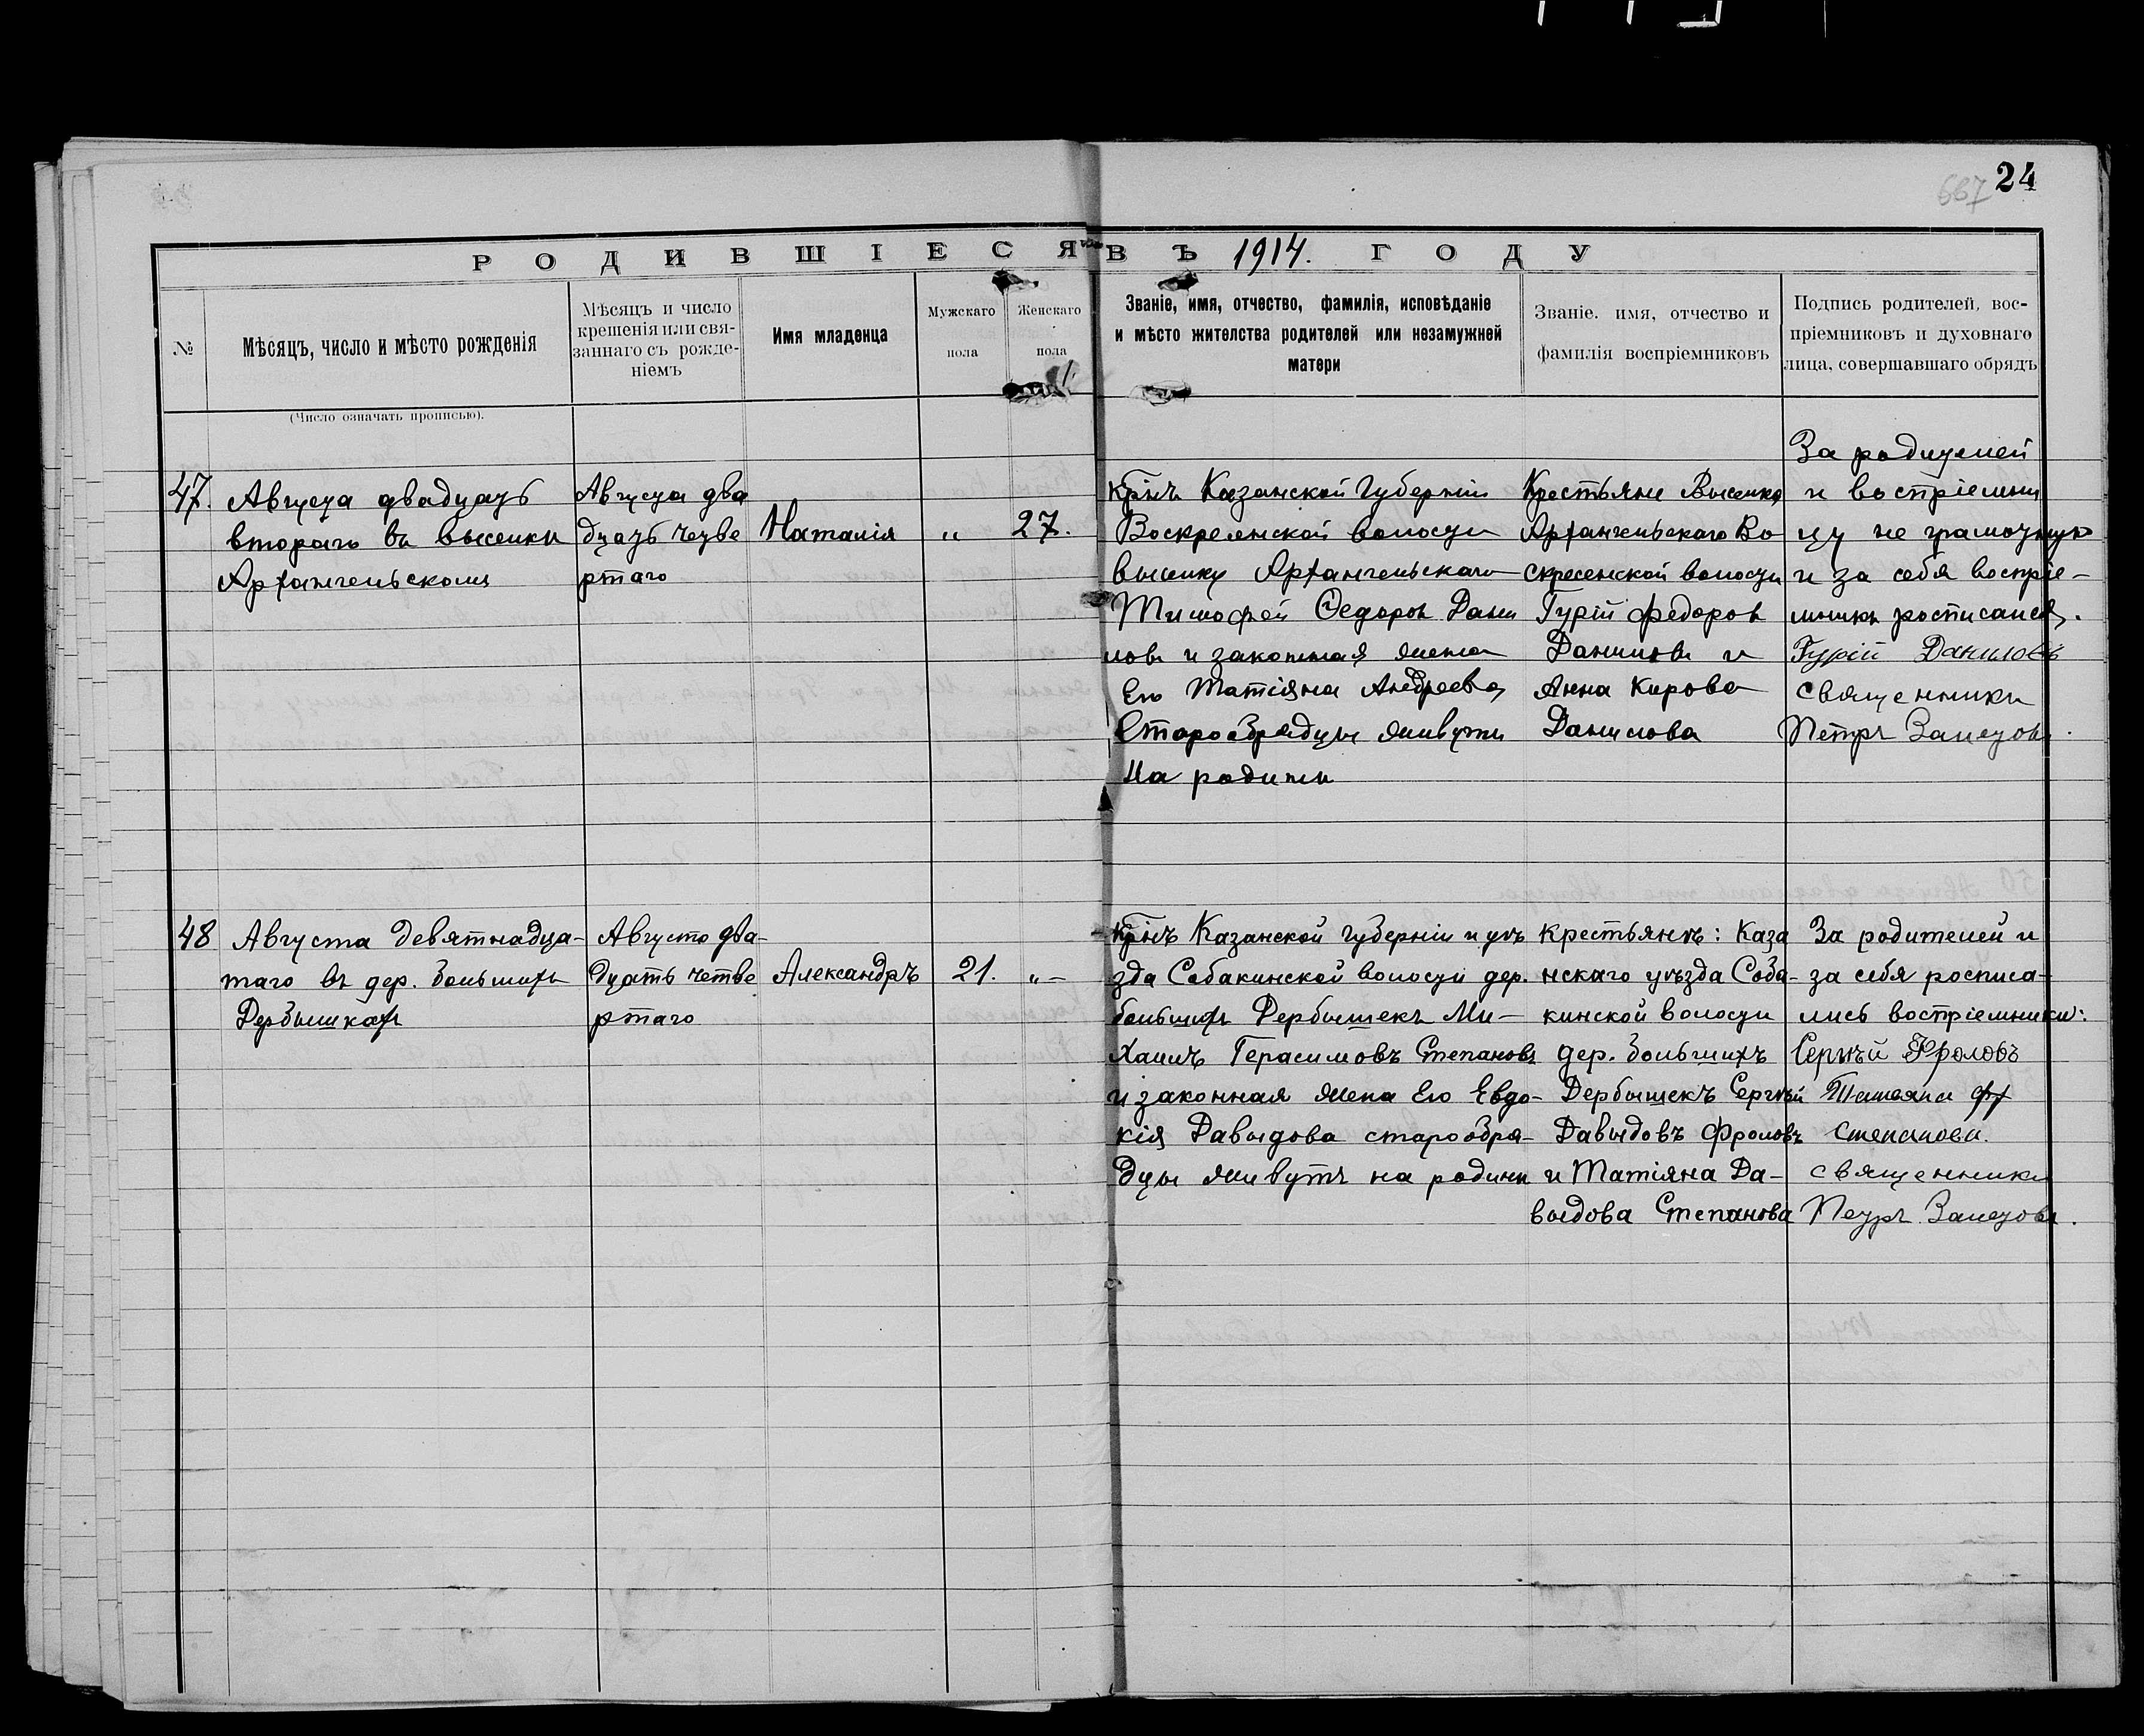 24
667
РОДИВШІЕСЯ ВЪ 1914. ГОДУ
№
Мѣсяцъ, число и мѣсто рожденія
(Число означать прописью).
Мѣсяцъ и число
крещенія или свя-
заннаго съ рожде-
ніемъ
Имя младенца
Мужскаго
пола
Женскаго
пола
Званіе, имя, отчество, фамилія, исповѣданіе
и мѣсто жителства родителей или незамужней
матери
Званіе. имя, отчество и
фамилія воспріемниковъ
Подпись родителей, вос-
пріемниковъ и духовнаго
лица, совершавшаго обрядъ
47.
Августа двадцать
втораго въ выселки
Архангельскомъ
Августа два
дцать четве
ртаго
Наталія
„
27.
Крінъ Казанской Губерніи
Воскресенской волости
выселку Архангельскаго
Тимофей Федоров Дани
ловъ и законная жена
Его Татіяна Андреева
Старообрядцы живутъ
На родинѣ
Крестьяне Выселка
Архангельскаго Во-
скресенской волости
Гурій Федоров
Даниловъ и
Анна Кирова
Данилова
За родителей
и воспріемни
цу не грамотную
и за себя воспріе-
мникъ росписался.
Гурій Даниловъ
священникъ
Петръ Залетовъ.
48
Августа девятнадца-
таго въ дер. Большихъ
Дербышкахъ
Августа два-
дцать четве
ртаго
Александръ
21.
„-
Крінъ Казанской губерніи и уѣ
зда Собакинской волости дер.
Большихъ Дербышекъ Ми-
хаилъ Герасимовъ Степановъ
и законная жена Его Евдо-
кія Давыдова старообря-
дцы живутъ на родинѣ
Крестьянѣ: Каза
нскаго уѣзда Соба-
кинской волости
дер. Большихъ
Дербышекъ Сергѣй
Давыдовъ Фроловъ
и Татіяна Да-
выдова Степанова
За родителей и
за себя росписа-
лись воспріемники:
Сергѣй Фроловъ
Татьяна
Степанова.
священникъ
Петръ Залетовъ.